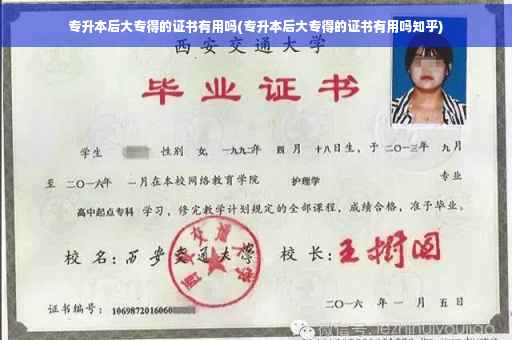 专升本后大专得的证书有用吗(专升本后大专得的证书有用吗知乎)
西安交通大学
毕业证书
学生 性别 女, 一九九二年 四月 十八日生, 于二〇一三年 九月
至 二〇一六年 一月在本校网络教育学院 护理学 专业
高中起点专科 学习, 修完教学计划规定的全部课程, 成绩合格, 准予毕业。
校名: 西安交通大学 校长: 王树国
西安交通大学
证书编号: 1069872016060
二〇一六年 一月 五日
微信号: jezhihuiyoujiao